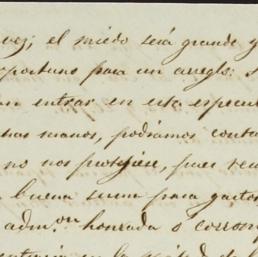 vez; el miedo será grande y
oportuno para un arreglo:
entrar en esta especul
manos, podríamos conta
no nos protegiese, pues
buena suma para gastos
adm.on honrada ó
en la mitad de